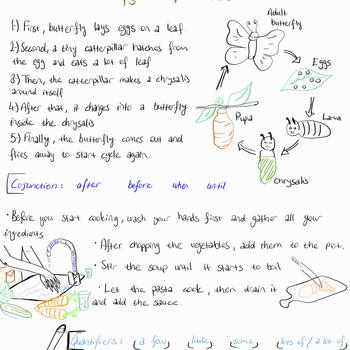 Adult
butterfly
1) First, butterfly lays eggs on a leaf.
2) Second, a tiny catterpillar hatches from
the egg and eats a lot of leaf
3) Then, the catterpillar makes a chrysalis
around itself
4) After that, it changes into a butterfly
inside the chrysalis
5) Finally, the butterfly comes out and
flies away to start cycle again.
Eggs
Larva
Pupa
chrysalis
Cojunction: after before when until
• Before you start cooking, wash your hands first and gather all your
ingredients
• After chopping the vegetables, add them to the pot.
• Stir the soup until it starts to boil
• Let the pasta cook, then drain it
and add the sauce.
Quantifiers: a few, little, some, lots of / a lot of